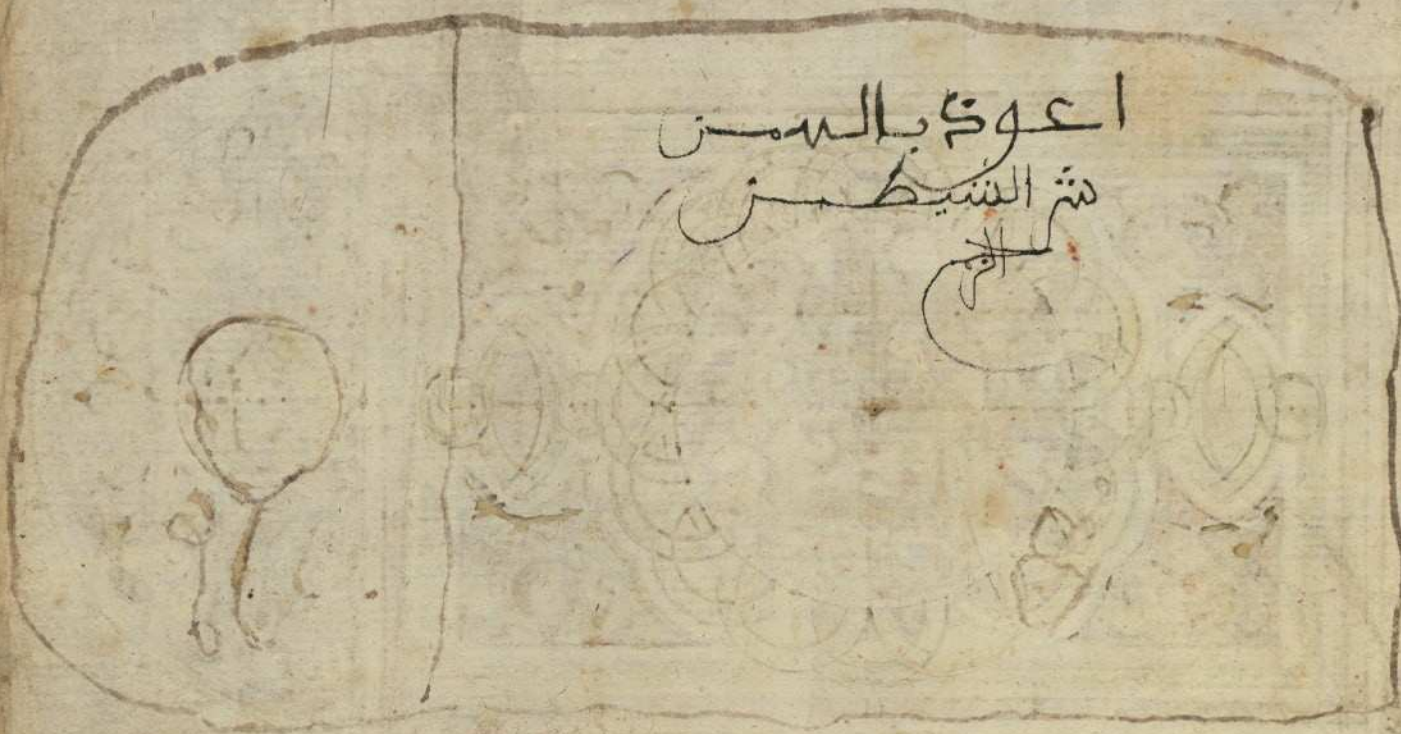 اعوذ بالله من
شر الشيطن
الر